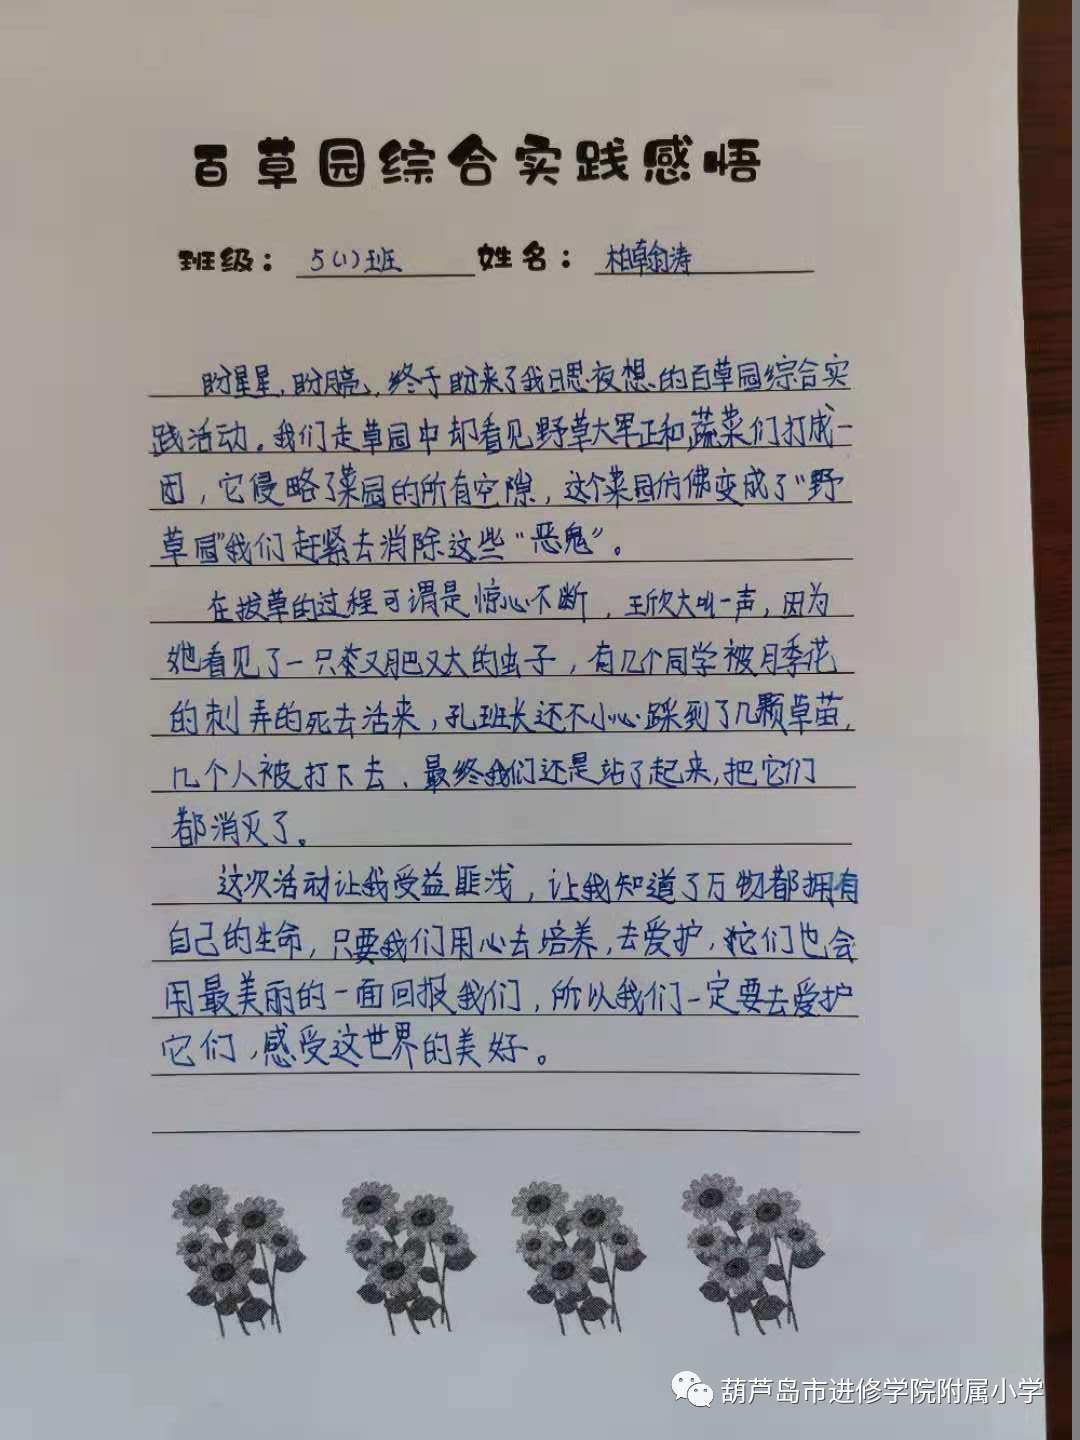 百草园综合实践感悟
班级：5(1)班 姓名：柏翰涛
盼星星,盼月亮,终于盼来了我日思夜想的百草园综合实
践活动。我们走草园中却看见野草大军正和蔬菜们打成一
团，它侵略了菜园的所有空隙，这个菜园仿佛变成了“野
草园”我们赶紧去消除这些“恶鬼”。
在拔草的过程可谓是惊心不断，王欣大叫一声，因为
她看见了一只又肥又大的虫子，有几个同学被月季花
的刺弄的死去活来，孔班长还不小心踩到了几颗草苗，
几个人被打下去、最终我们还是站了起来,把它们
都消灭了。
这次活动让我受益匪浅，让我知道了万物都拥有
自己的生命，只要我们用心去培养，去爱护，它们也会
用最美丽的一面回报我们，所以我们一定要去爱护
它们，感受这世界的美好。
葫芦岛市进修学院附属小学